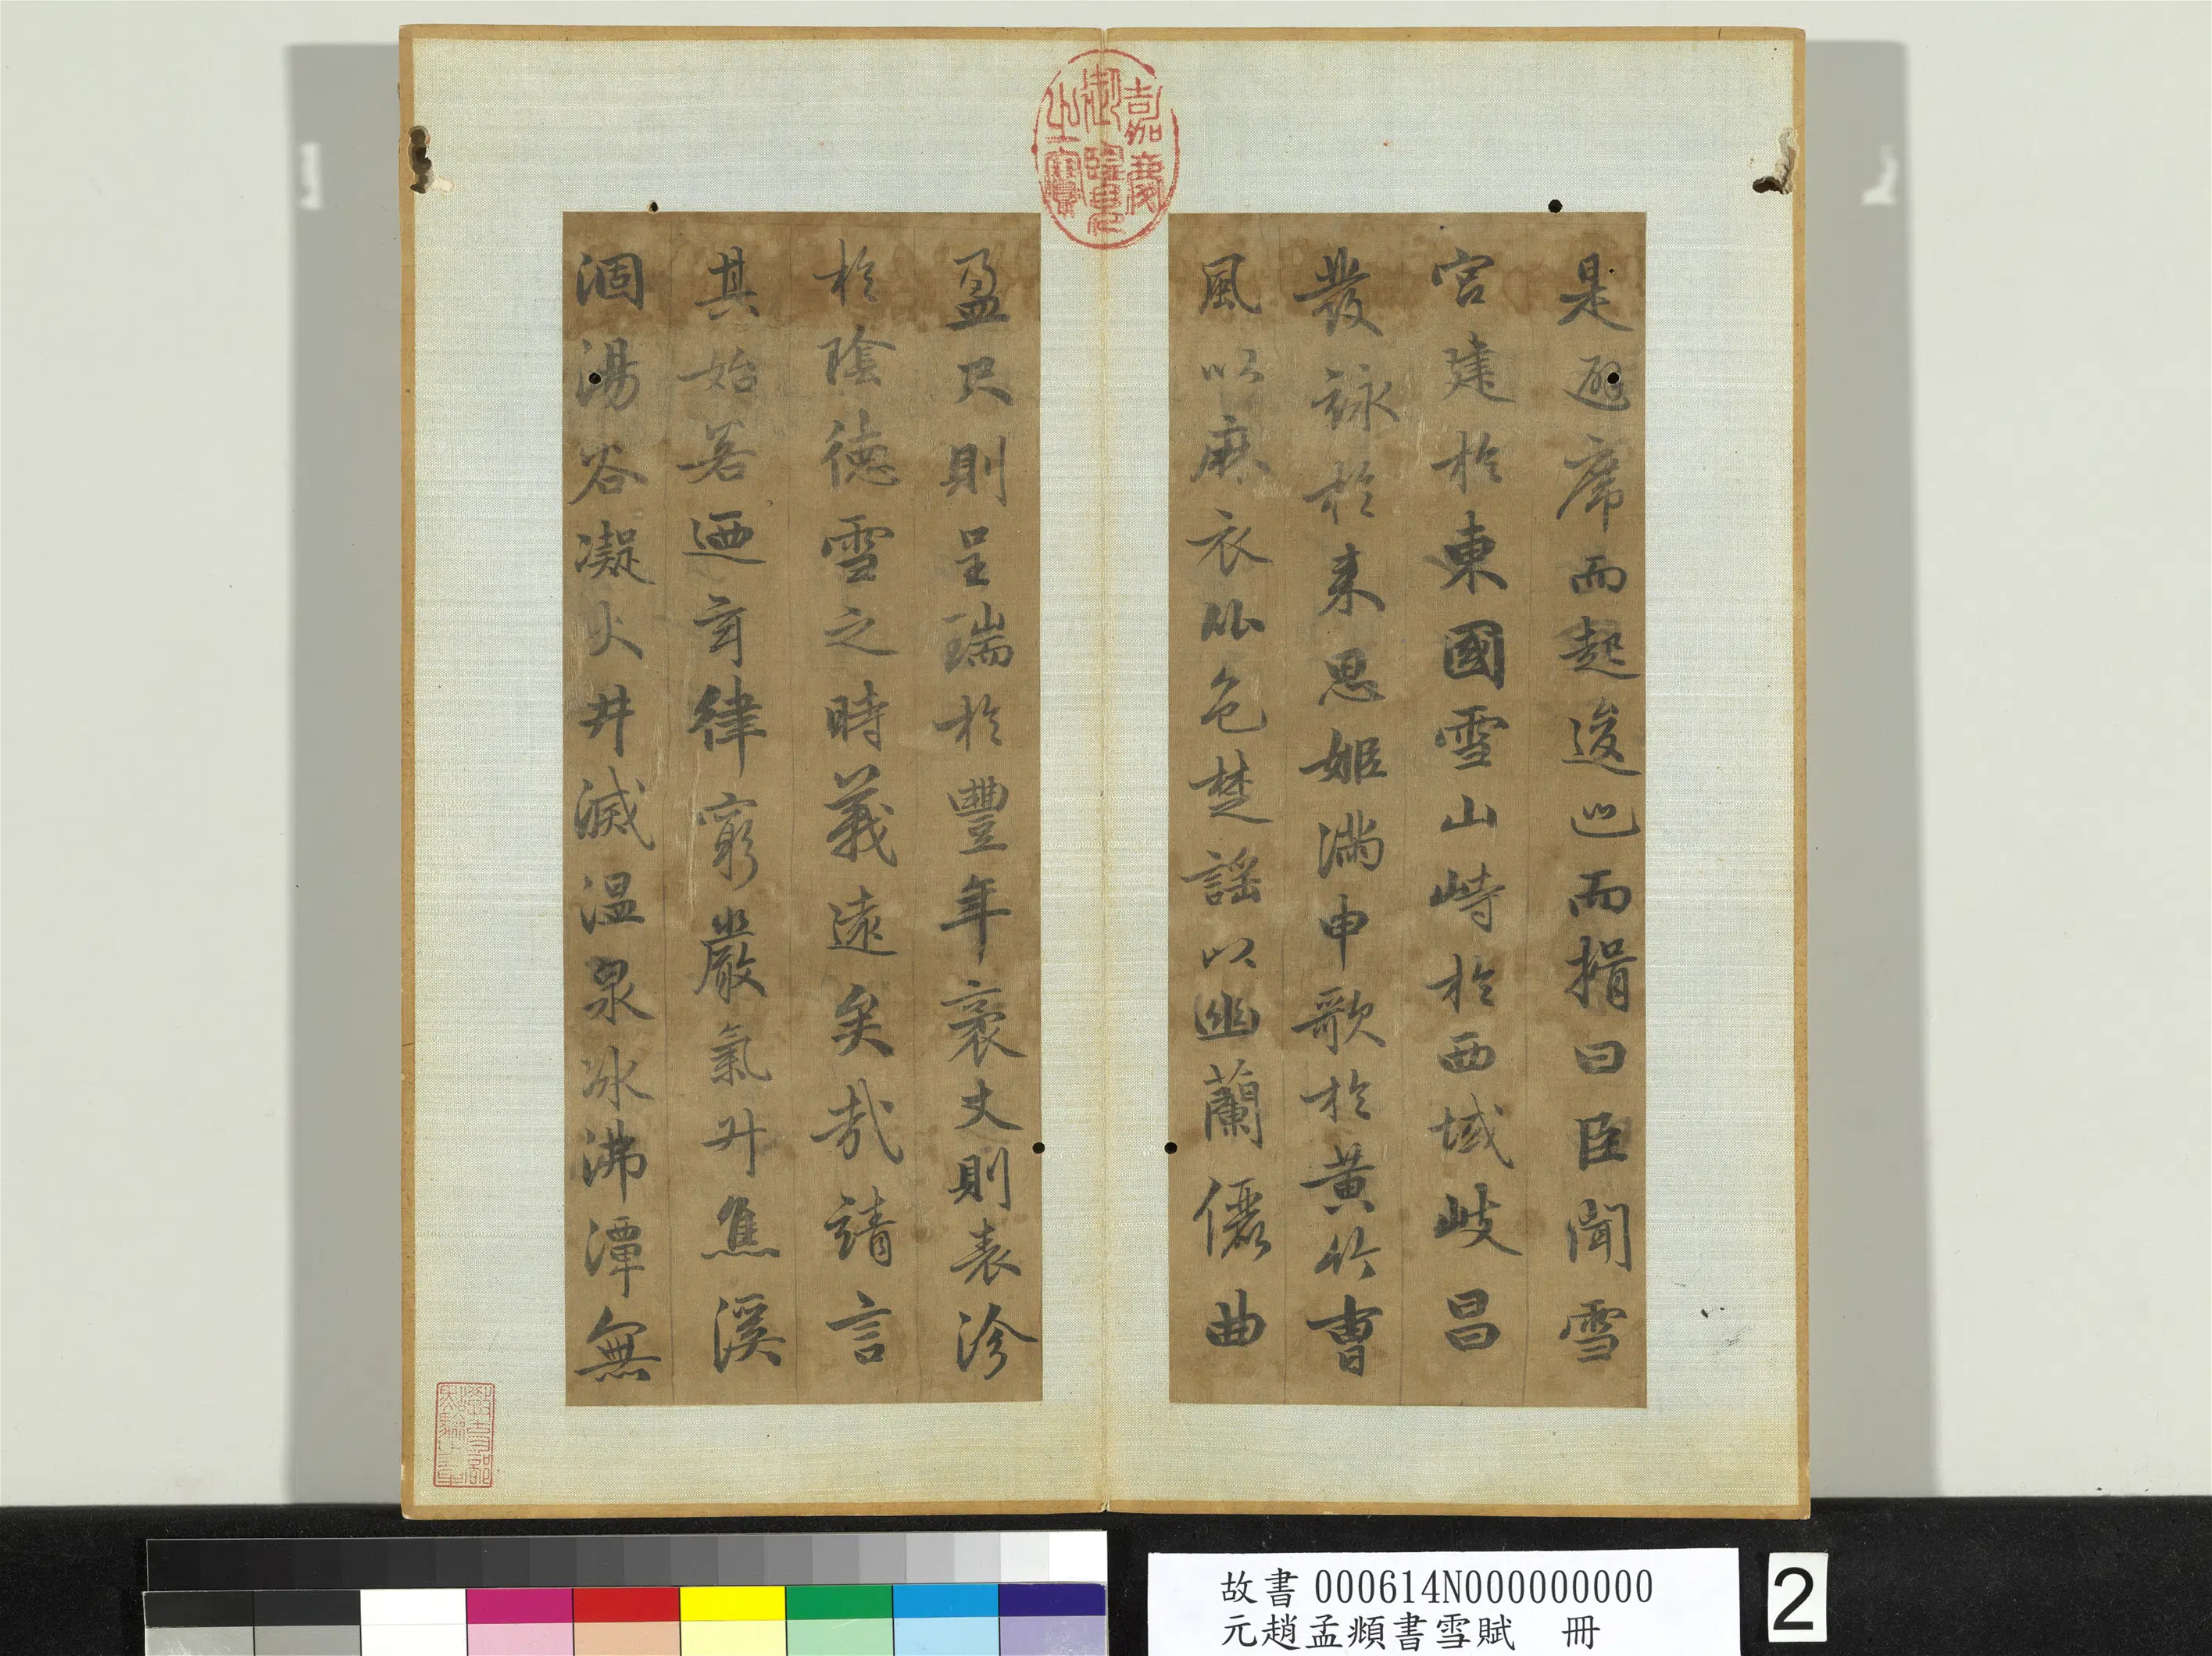 是避席而起逡巡而揖曰臣聞雪
宮建於東國雪山峙於西域岐昌
發詠於来思姬滿申歌於黃竹曹
風以麻衣比色楚謠以幽蘭儷曲
盈尺則呈瑞於豐年袤丈則表沴
於陰德雪之時義遠矣哉請言
其始若迺玄律窮嚴氣升焦溪
涸湯谷凝火井滅温泉冰沸潭無
嘉慶御覽之寶
故書 000614N000000000
元趙孟頫書雪賦 冊
2